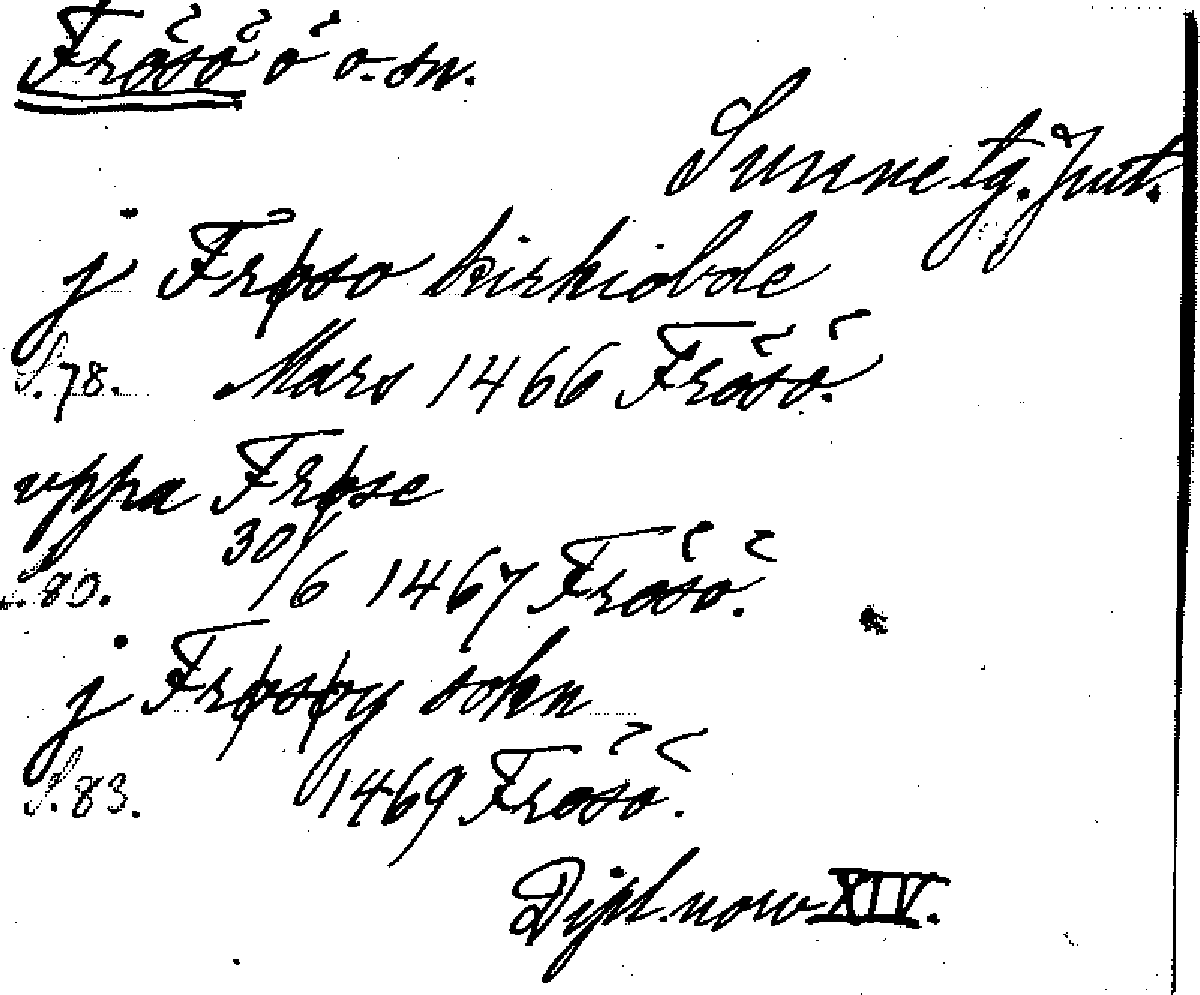 Frösö ö o. sn.
Sunne tg. Jmt.
j Frøso kirkiobole
S. 78. Mars 1466 Frösö.
vppa Frøse
S. 80. 30/6 1467 Frösö.
j Frøsøy sokn
S. 83. 1469 Frösö.
Dipl. norv. XIV.